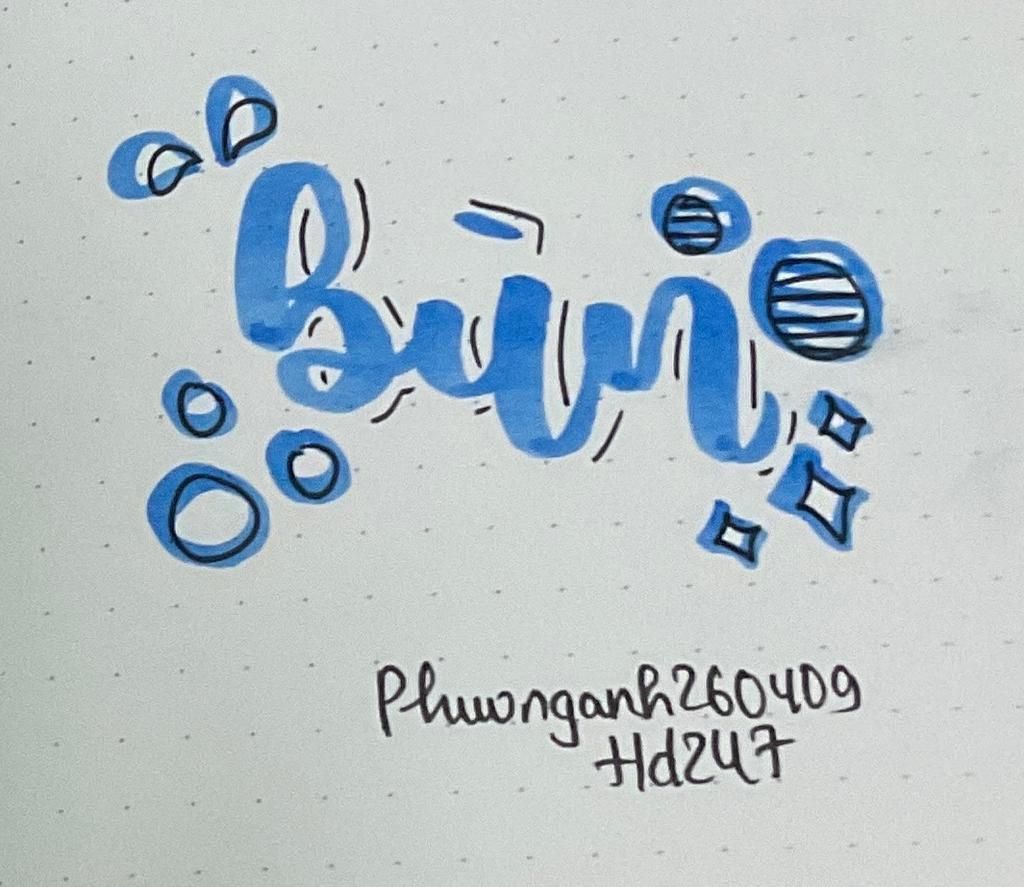 Bùn
Phuwnganh260409
Hd247